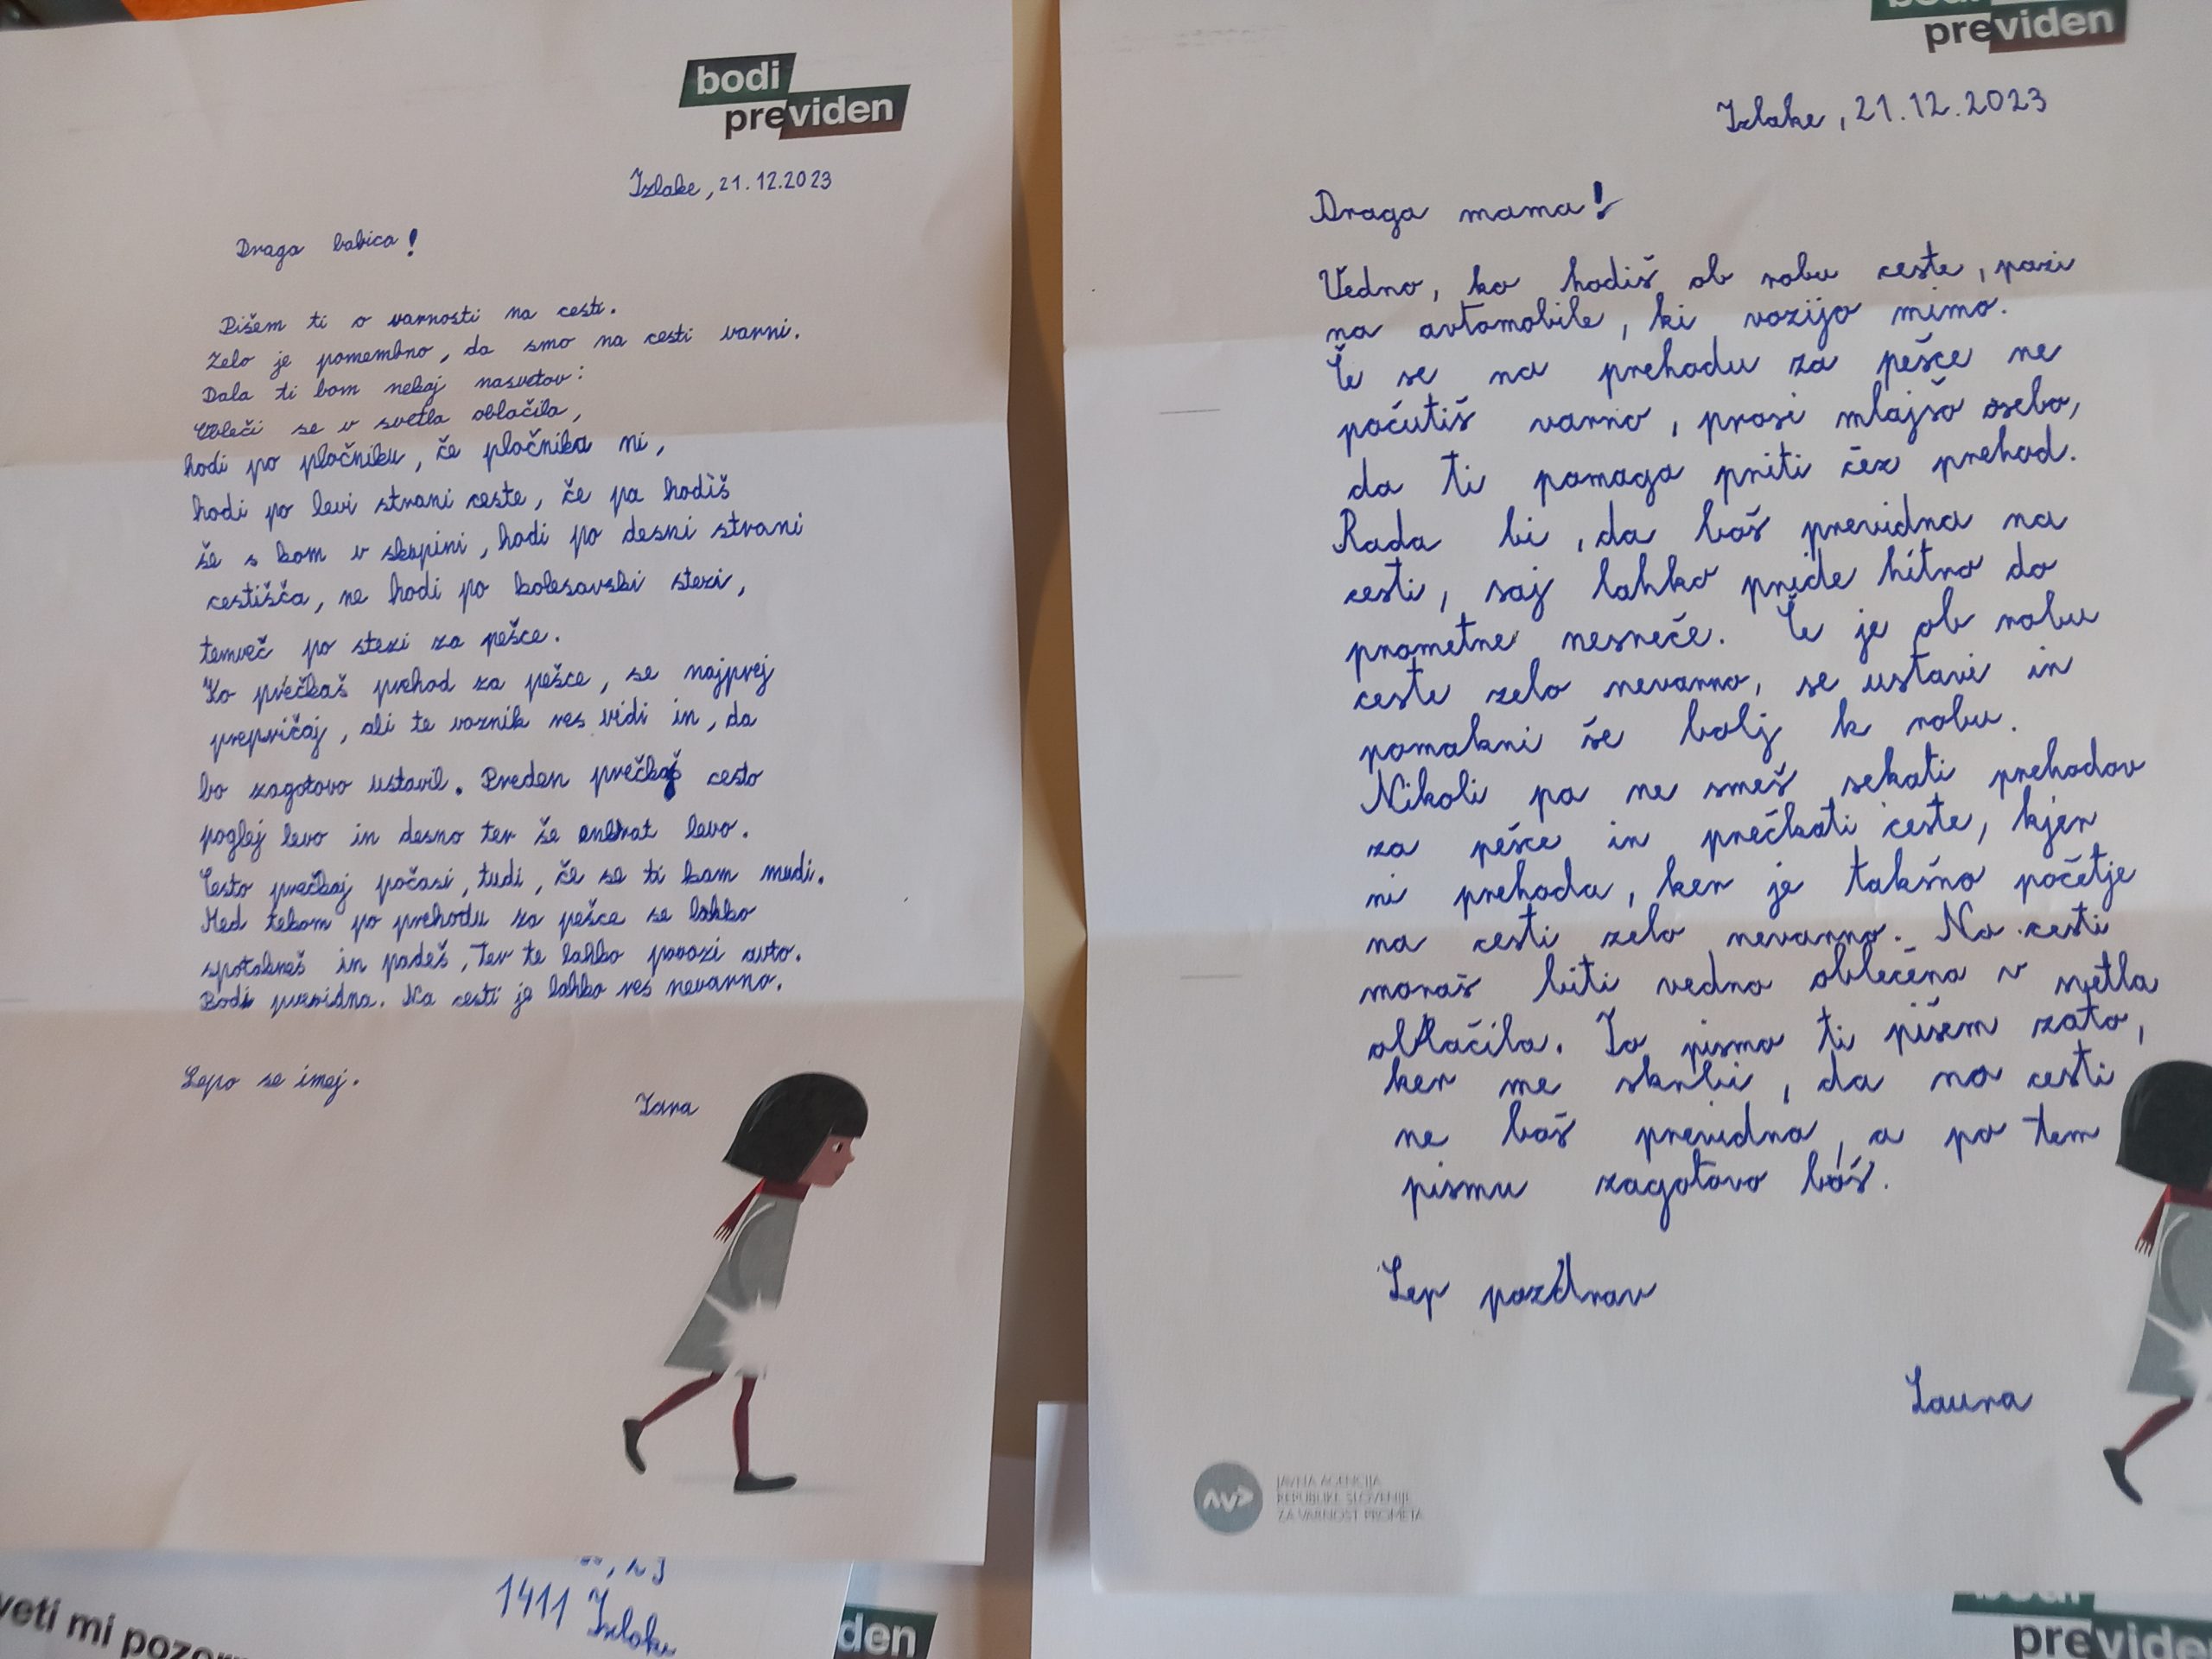 bodi
previden
Izlake, 21.12.2023
Draga babica!
Pišem ti o varnosti na cesti.
Zelo je pomembno, da smo na cesti varni.
Dala ti bom nekaj nasvetov:
Obleči se v svetla oblačila,
hodi po pločniku, če pločnika ni,
hodi po levi strani ceste, če pa hodiš
še s kom v skupini, hodi po desni strani
cestišča, ne hodi po kolesarski stezi,
temveč po stezi za pešce.
Ko prečkaš prehod za pešce, se najprej
prepričaj, ali te voznik res vidi in, da
bo zagotovo ustavil. Preden prečkaš cesto
poglej levo in desno ter še enkrat levo.
Cesto prečkaj počasi, tudi, če se ti kam mudi.
Med tekom po prehodu za pešce se lahko
spotakneš in padeš, ter te lahko povozi avto.
Bodi previdna. Na cesti je lahko res nevarno.
Lepo se imej.
Zara
veti mi pozor
1411 Izlake
den
previden
Izlake, 21.12.2023
Draga mama!
Vedno, ko hodiš ob robu ceste, pazi
na avtomobile, ki vozijo mimo.
Če se na prehodu za pešce ne
počutiš varno, prosi mlajšo osebo,
da ti pomaga priti čez prehod.
Rada bi, da boš previdna na
cesti, saj lahko pride hitro do
prometne nesreče. Če je ob robu
ceste zelo nevarno, se ustavi in
pomakni še bolj k robu.
Nikoli pa ne smeš sekati prehodov
za pešce in prečkati ceste, kjer
ni prehoda, ker je takšno početje
na cesti zelo nevarno. Na cesti
moraš biti vedno oblečena v svetla
oblačila. To pismo ti pišem zato,
ker me skrbi, da na cesti
ne boš previdna, a po tem
pismu zagotovo boš.
Lep pozdrav
Laura
AVP
JAVNA AGENCIJA
REPUBLIKE SLOVENIJE
ZA VARNOST PROMETA
previde